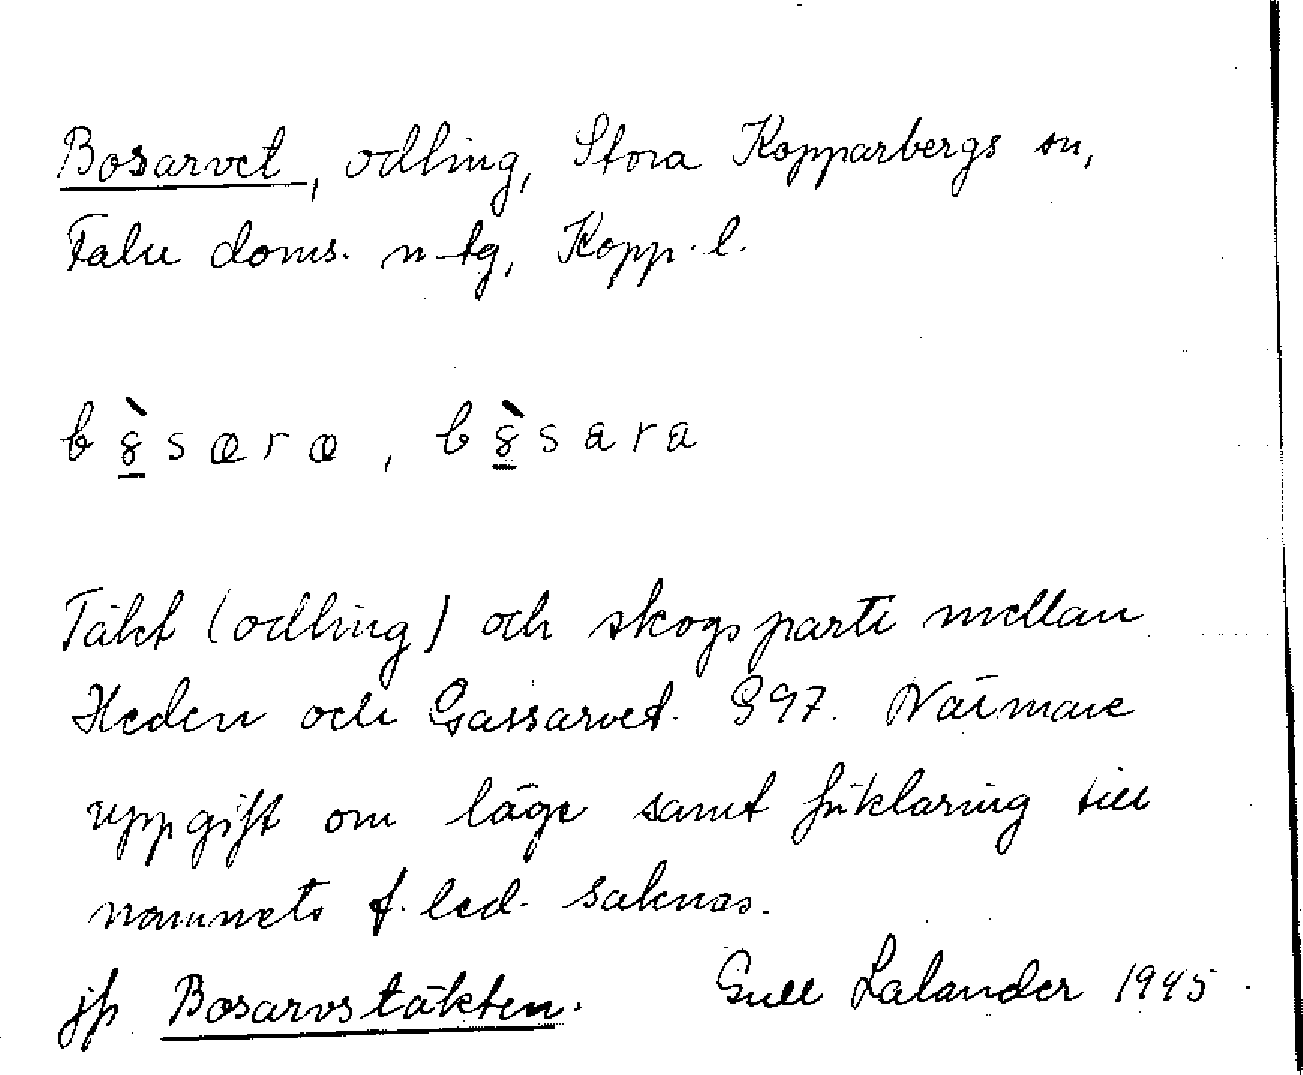 Bosarvet, odling, Stora Kopparbergs sn,
Falu doms. n tg, Kopp. l.
Täkt (odling) och skogsparti mellan
Heden och Gassarvet. 897. Närmare
uppgift om läge samt förklaring till
namnets f. led. saknas.
jfr Bosarvstäkten. Gull Lalander 1945.